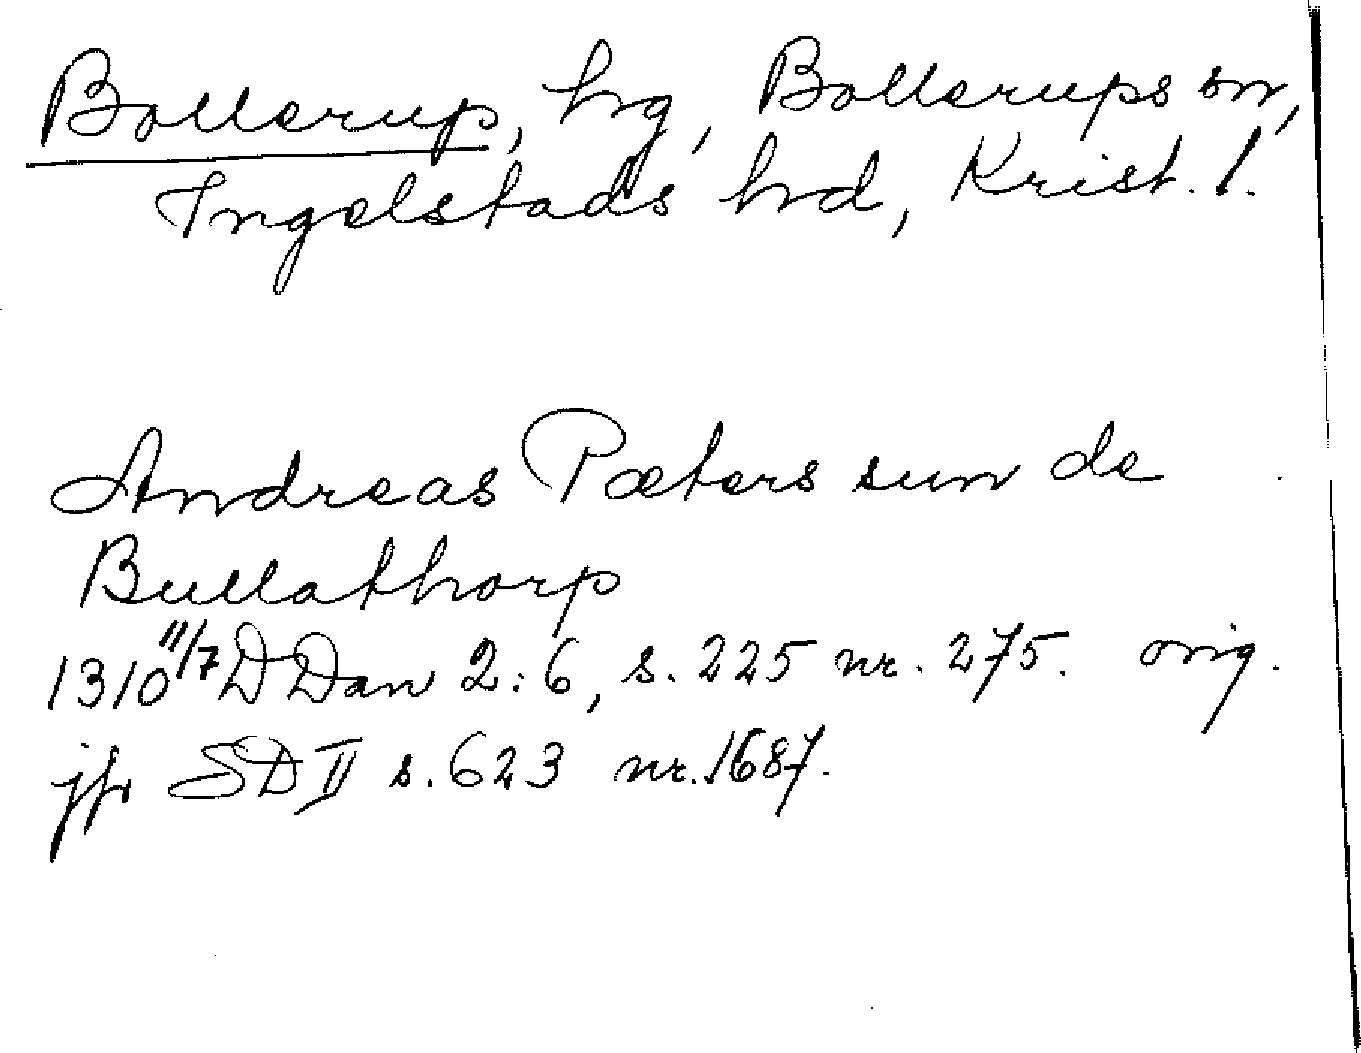 Bollerup, hg, Bollerups sn,
Ingelstads hd, Krist. l.
Andreas Pæters sun de
Bullathorp
1310 11/7 DDan 2:6, s. 225 nr. 275. orig.
jfr SD II s. 623 nr. 1687.